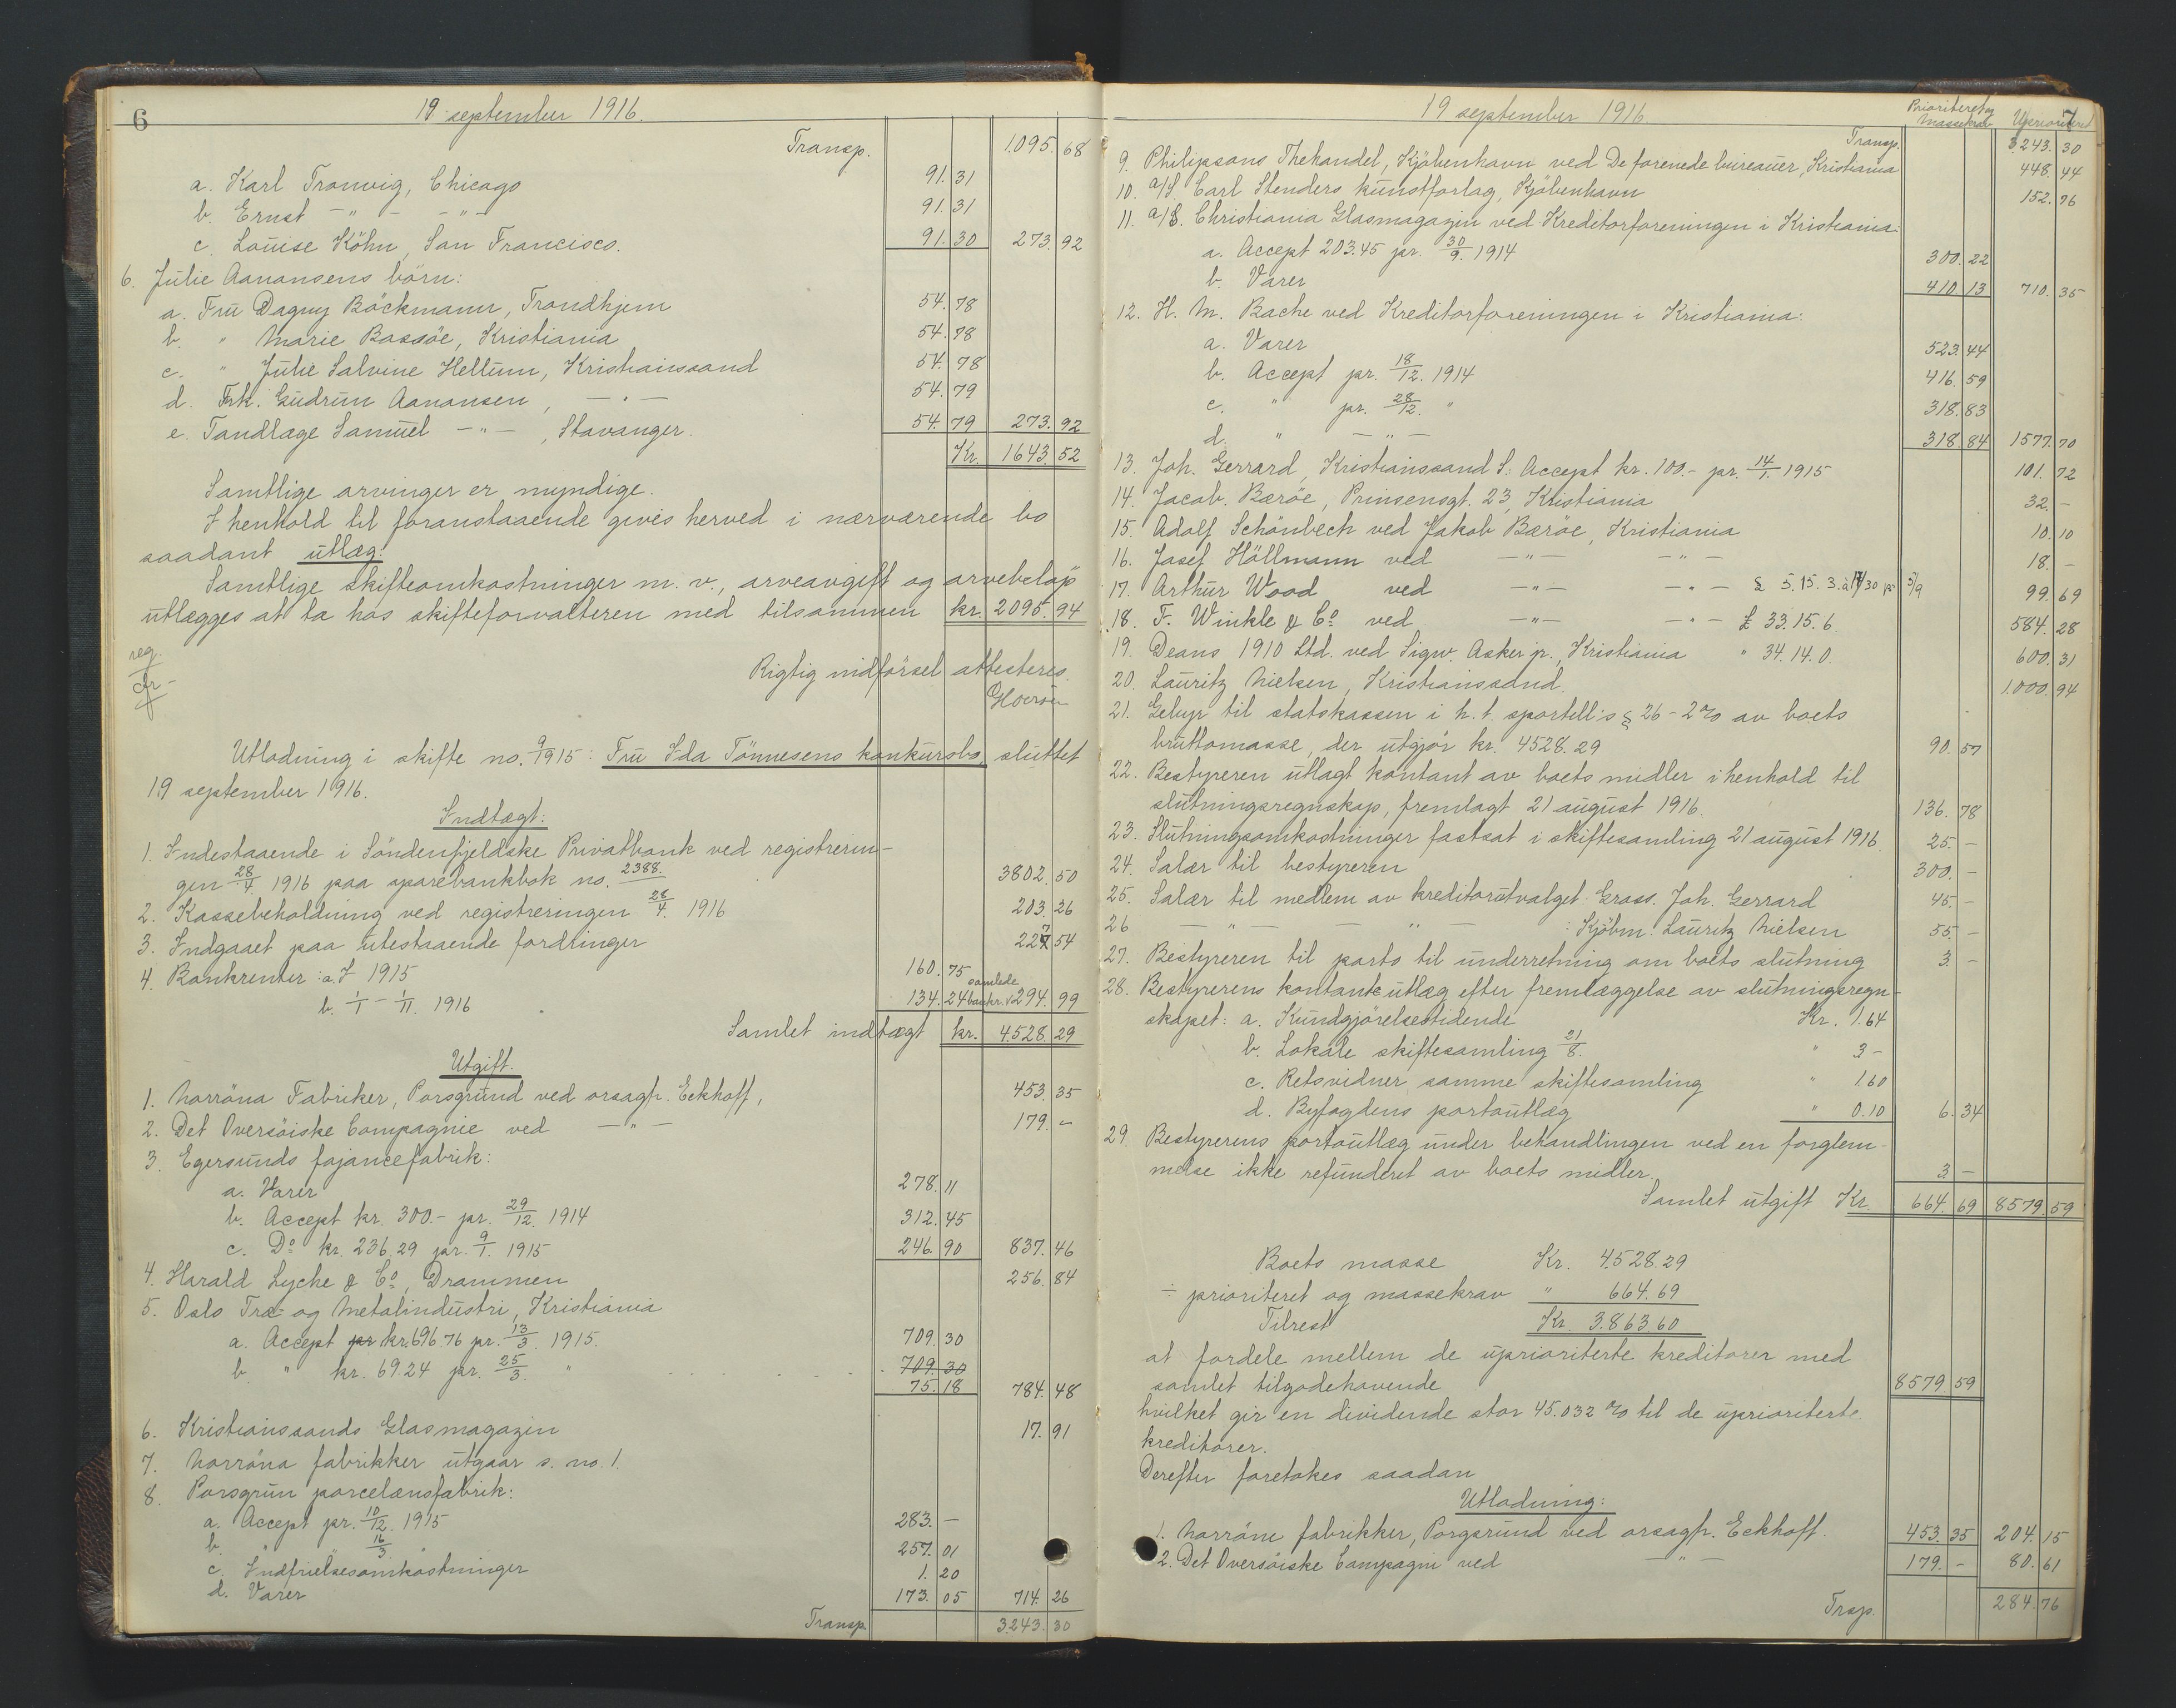 6
19 september 1916.
Transp. 1095.68
a. Karl Tronvig, Chicago 91.31
b. Ernst -"- -"- 91.31
c. Louise Köhn, San Francisco. 91.30 273.92
6. Julie Aanonsens börn:
a. Fru Dagny Böckmann, Trondhjem 54.78
b. " Marie Bassöe, Kristiania 54.78
c. " Julie Salvine Hellum, Kristianssand 54.78
d. Frk. Gudrun Aanonsen, -"- 54.79
e. Tandlæge Samuel -"-, Stavanger. 54.79 273.92
Kr. 1643.52
Samtlige arvinger er myndige.
I henhold til foranstaaende gives herved i nærværende bo
saadant utlæg:
Samtlige skifteomkostninger m. v., arveavgift og arvebeløp
utlægges at ta hos skifteforvalteren med tilsammen kr. 2095.94
reg.
Rigtig indförsel attesteres.
Utlodning i skifte no. 9/1915: Fru Ida Tönnesens konkursbo, sluttet
19 september 1916.
Indtægt:
1. Indestaaende i Söndenfjeldske Privatbank ved registrerin-
gen 28/4. 1916 paa sparebankbok no. 2388. 3802.50
2. Kassebeholdning ved registreringen 28/4. 1916 203.26
3. Indgaaet paa utestaaende fordringer 227.54
4. Bankrenter: a. I 1915 160.75
samlede
b. 1/1 - 1/11. 1916 134.24 bankr. 294.99
Samlet indtægt kr. 4.528.29
Utgift.
1. Norröna Fabriker, Porsgrund ved orsagf. Eckhoff, 453.35
2. Det Oversöiske Compagnie ved -"- 179.-
3. Egersunds fajancefabrik:
a. Varer 278.11
b. Accept kr. 300.- pr. 29/12. 1914 312.45
c. Do kr. 236.29 pr. 9/1. 1915 246.90 837.46
4. Harald Lyche & Co, Drammen 256.84
5. Oslo Træ- og Metalindustri, Kristiania
a. Accept pr kr. 696.76 pr. 13/3. 1915. 709.30
b. " kr. 69.24 pr. 25/3. " 709.30
75.18 784.48
6. Kristianssands Glasmagazin 17.91
7. Norröna fabrikker utgaar s. no. 1.
8. Porsgrun porcelænsfabrik:
a. Accept pr. 10/12. 1915 283.-
b. " 16/3. " 257.01
c. Indfrielsesomkostninger 1.20
d. Varer 173.05 714.26
Transp. 3.243.30
19 september 1916
7
Prioritert og
massekrav Uprioritert
Transp. 3.243.30
9. Philipsons Thehandel, Kjöbenhavn ved De forenede bureauer, Kristiania 448.44
10. A/S. Carl Stenders kunstforlag, Kjöbenhavn 152.76
11. A/S. Christiania Glasmagazin ved Kreditorforeningen i Kristiania:
a. Accept 203.45 pr. 30/9. 1914 300.22
b. Varer 410.13 710.35
12. H. M. Bache ved Kreditorforeningen i Kristiania:
a. Varer 523.44
b. Accept pr. 18/12. 1914 416.59
c. " pr. 28/12. " 318.83
d. " -"- 318.84 1577.70
13. Joh. Gerrard, Kristianssand S.: Accept kr. 100.- pr. 14/1. 1915 101.72
14. Jacob. Bæröe, Prinsensgt. 23, Kristiania 32.-
15. Adolf Schönbech ved Jakob Bæröe, Kristiania 10.10
16. Josef Höllmann ved -"- -"- 18.-
17. Arthur Wood ved -"- -"- £ 5.15.3. 99.69
18. F. Winkle & Co ved -"- -"- £ 33.15.6. 584.28
19. Deans 1910 Ltd. ved Sigw. Asker jr., Kristiania " 34.14.0. 600.31
20. Lauritz Nielsen, Kristianssand. 1.000.94
21. Gebyr til statskassen i h. t. sportell:s § 26 - 2% av boets
bruttomasse, der utgjör kr. 4528.29 90.57
22. Bestyreren utlagt kontant av boets midler i henhold til
slutningsregnskap, fremlagt 21 august 1916. 136.78
23. Slutningsomkostninger fastsat i skiftesamling 21 august 1916. 25.-
24. Salær til bestyreren 300.-
25. Salær til medlem av kreditorutvalget: Gross. Joh. Gerrard 45.-
26 -"- -"- : Kjöbm: Lauritz Nielsen 55.-
27. Bestyreren til porto til underretning om boets slutning 3.-
28. Bestyrerens kontante utlæg efter fremlæggelse av slutningsregn-
skapet: a. Kundgjörelsestidende Kr. 1.64
b. Lokale skiftesamling 21/8. " 3-
c. Retsvidner samme skiftesamling " 1.60
d. Byfogdens portoutlæg " 0.10 6.34
29. Bestyrerens portoutlæg under behandlingen ved en forglem-
melse ikke refunderet av boets midler. 3.-
Samlet utgift Kr. 664.69 8579.59
Boets masse Kr. 4.528.29
÷ prioriteret og massekrav " 664.69
Tilrest Kr. 3.863.60
at fordele mellem de uprioriterte kreditorer med
samlet tilgodehavende 8579.59
hvilket gir en dividende stor 45.032 % til de uprioriterte
kreditorer.
Derefter foretokes saadan
Utlodning:
1. Norröne fabrikker, Porgsrund ved orsagf. Eckhoff. 453.35 204.15
2. Det Oversöiske Campagni ved -"- 179.- 80.61
Trsp. 284.76